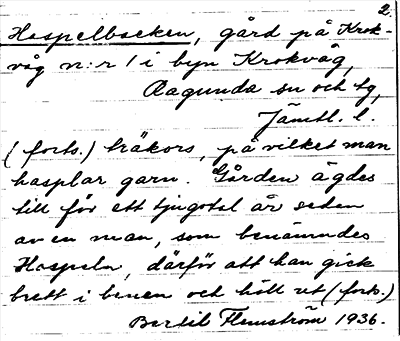 2.
Haspelbacken, gård på Krok-
våg n:r 1 i byn Krokvåg,
Ragunda sn och tg,
Jämtl. l.
(forts.) träkors, på vilket man
hasplar garn. Gården ägdes
till för ett tjugotal år sedan
av en man, som benämndes
Haspeln, därför att han gick
brett i benen och höll ut (forts.)
Bertil Flemström 1936.